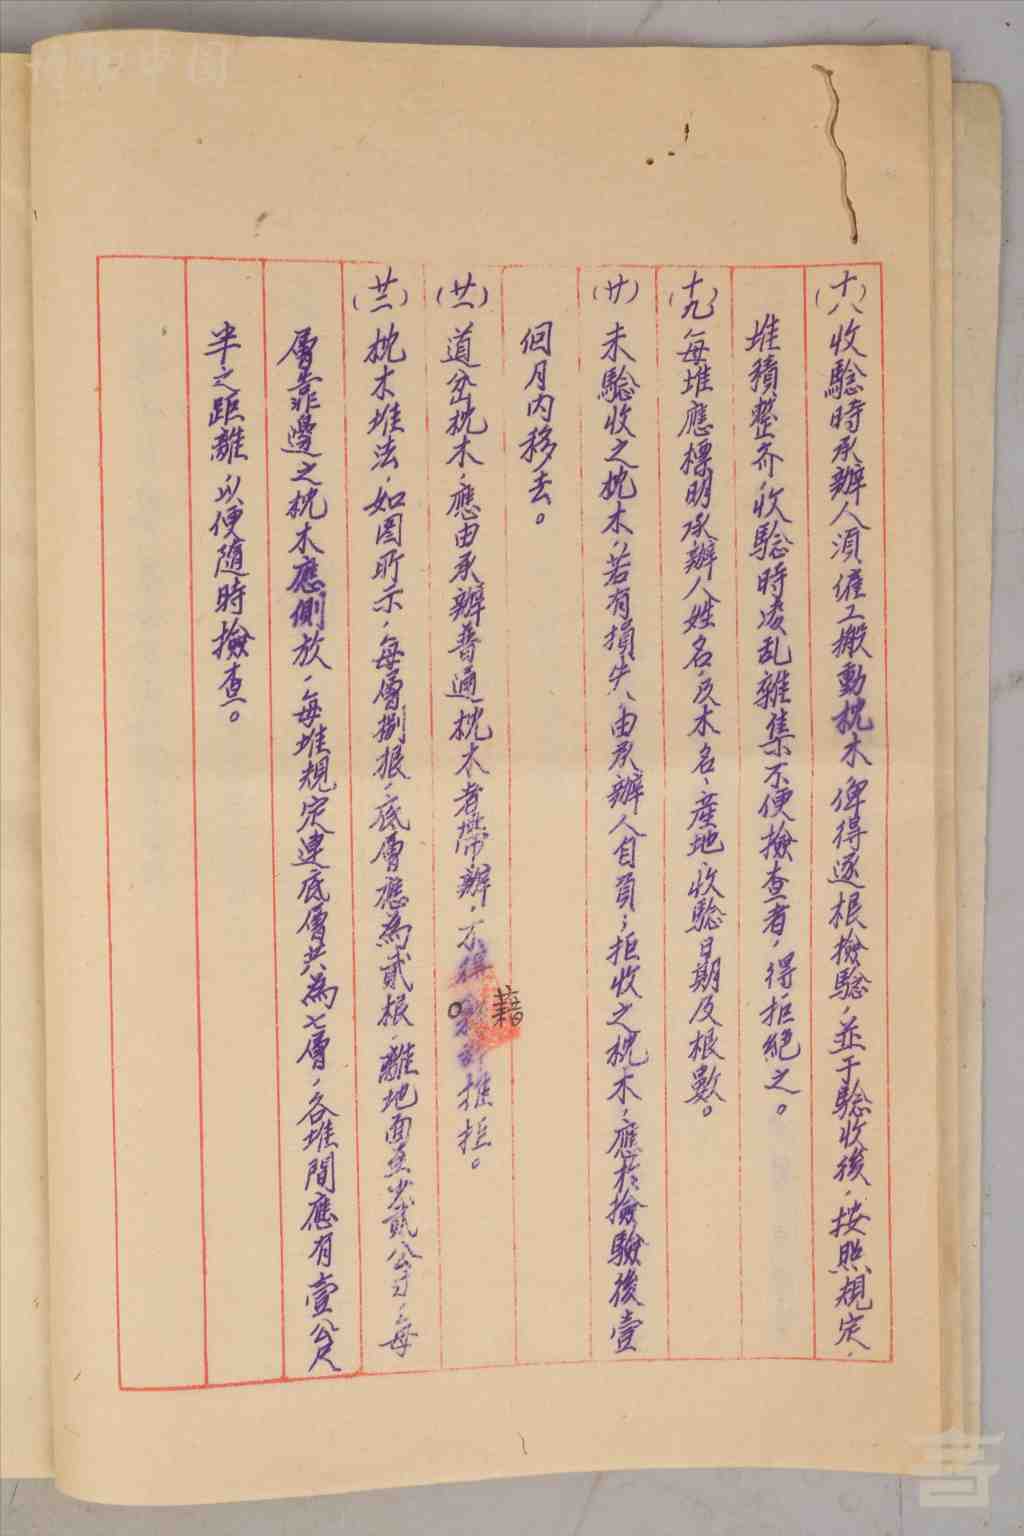 (十八)收驗時承辦人須僱工搬動枕木俾得逐根撿驗，並于驗收後，按照規定，
堆積整齐，收驗時凌乱雜集不便撿查者，得拒絕之。
(十九)每堆應標明承辦人姓名，及木名、產地收驗日期及根數。
(廿)未驗收之枕木，若有損失，由承辦人自負；拒收之枕木，應於撿驗後壹
個月內移去。
(廿一)道岔枕木，應由承辦普通枕木者帶辦，不得藉詞推拒。
(廿二)枕木堆法，如图所示，每層捌根，底層應為貳根，離地面至少貳公寸，每
層靠邊之枕木應側放，每堆規定連底層共為七層，各堆間應有壹公尺
半之距離，以便隨時撿查。